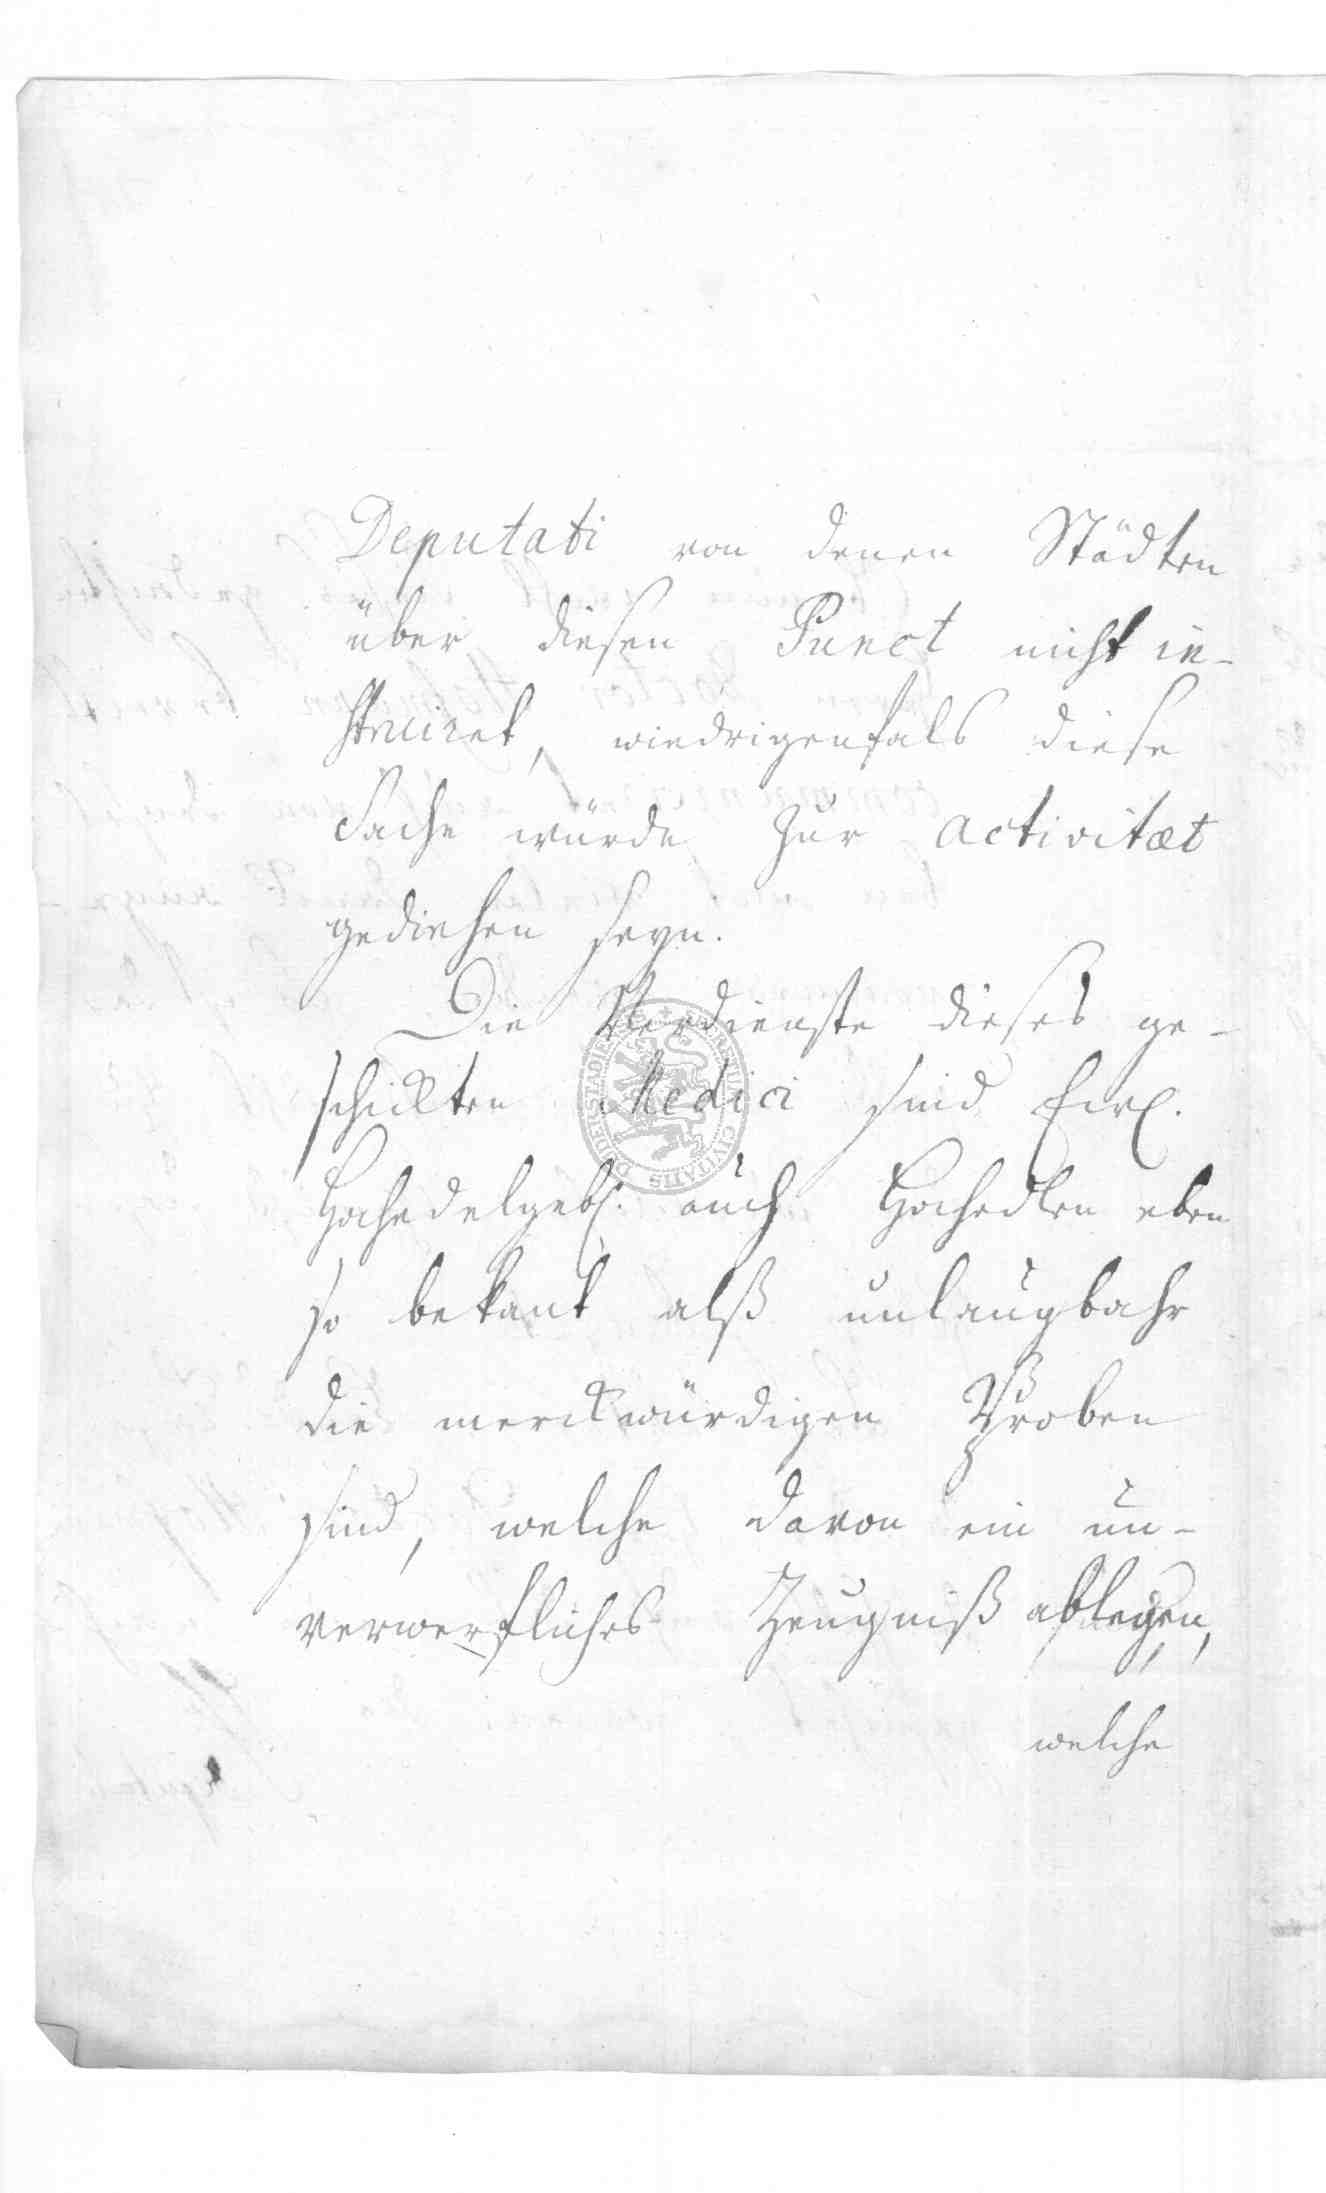 Deputati von denen Städten
über diesen Punct nicht in-
struiret, wiedrigenfals diese
Sache würde zur activitæt
gediehen seyn.
Die Verdienste dieses ge-
schickten Medici sind Ewl.
Hochedelgebl. auch Hochedlen eben
so bekant alß unlaugbahr
die merckwürdigen Proben
sind, welche davon ein un-
verwerfliches Zeugniß ablegen,
welche